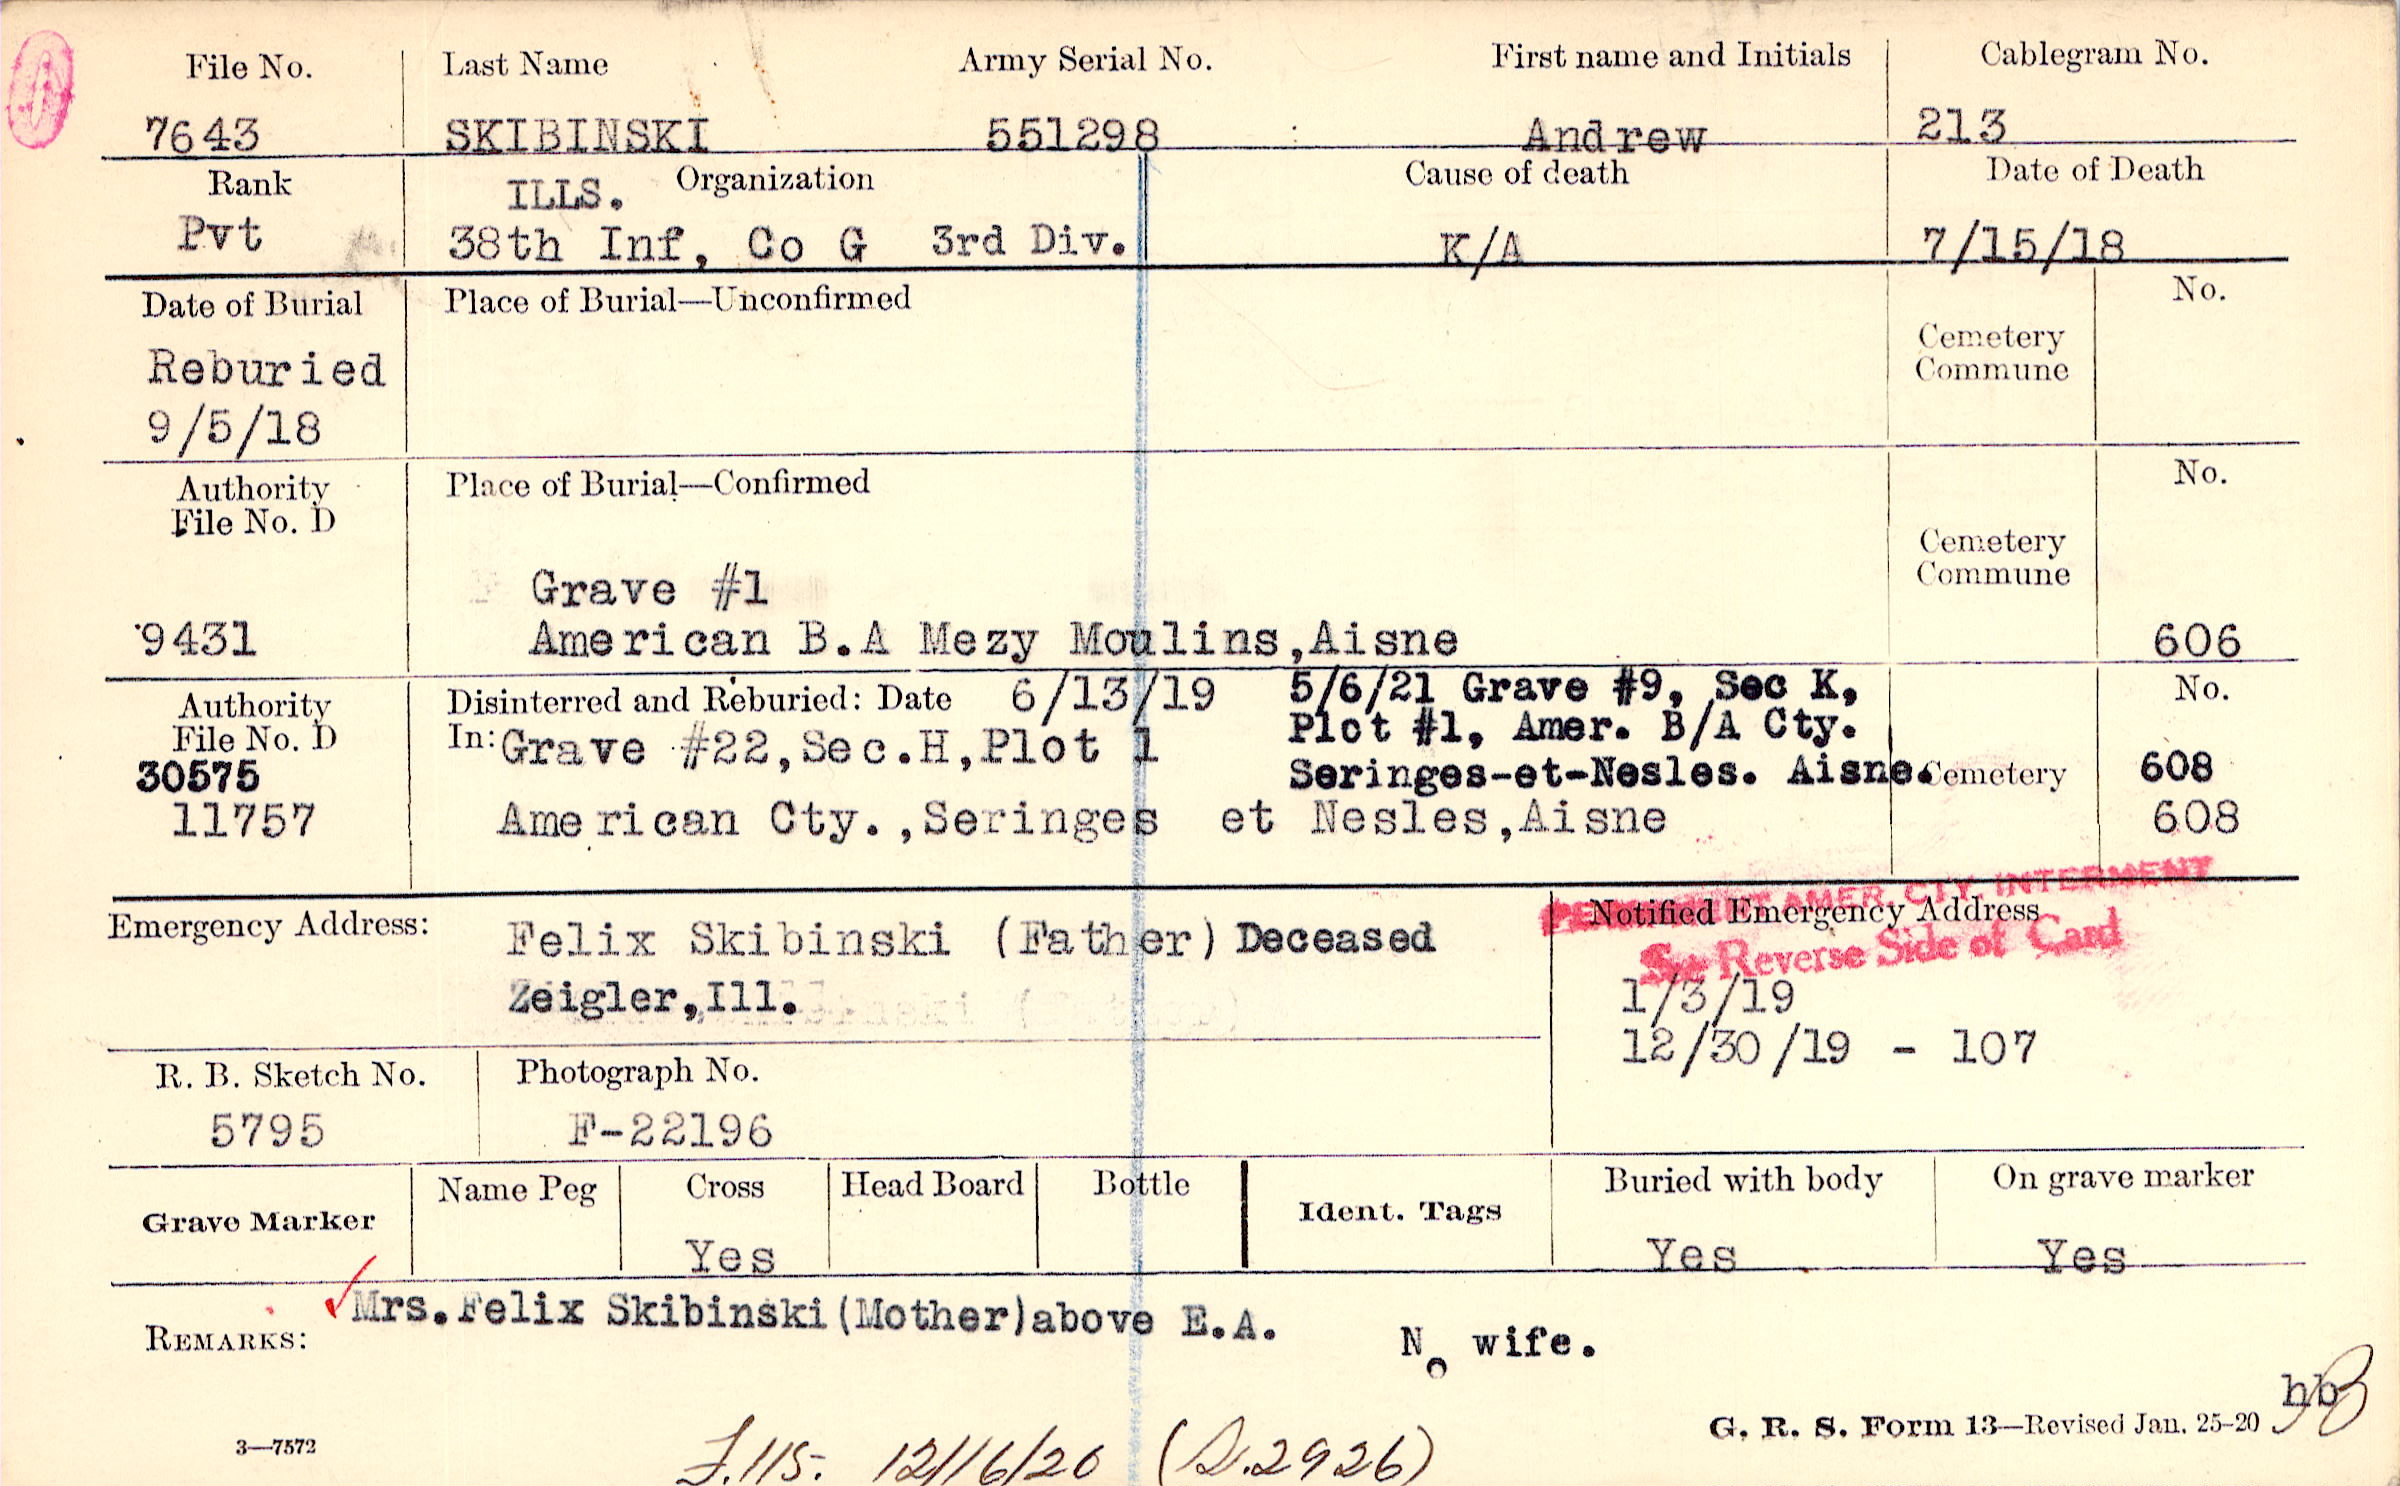 File No.
Last Name
Army Serial No.
First name and Initials
Cablegram No.
7643
SKIBINSKI
551298
Andrew
213
Rank
ILLS.
Organization
Cause of death
Date of Death
Pvt
38th Inf, Co G 3rd Div.
K/A
7/15/18
Date of Burial
Place of Burial—Unconfirmed
No.
Reburied
9/5/18
Cemetery
Commune
Authority
File No. D
Place of Burial—Confirmed
No.
Cemetery
Commune
Grave #1
9431
American B.A Mezy Moulins,Aisne
606
Authority
File No. D
30575
11757
Disinterred and Reburied: Date 6/13/19
In: Grave #22,Sec.H,Plot 1
American Cty.,Seringes et Nesles,Aisne
5/6/21 Grave #9, Sec K,
Plot #1, Amer. B/A Cty.
Seringes-et-Nesles. Aisne.
No.
Cemetery
608
608
Emergency Address:
Felix Skibinski (Father) Deceased
Zeigler,Ill.
PERMANENT AMER. CTY. INTERMENT
Notified Emergency Address
See Reverse Side of Card
1/3/19
12/30/19 - 107
R. B. Sketch No.
Photograph No.
5795
F-22196
Grave Marker
Name Peg
Cross
Yes
Head Board
Bottle
Ident. Tags
Buried with body
Yes
On grave marker
Yes
REMARKS:
Mrs.Felix Skibinski(Mother)above E.A.
No wife.
hb
G. R. S. Form 13—Revised Jan. 25-20
3—7572
12/16/20 (D.2926)